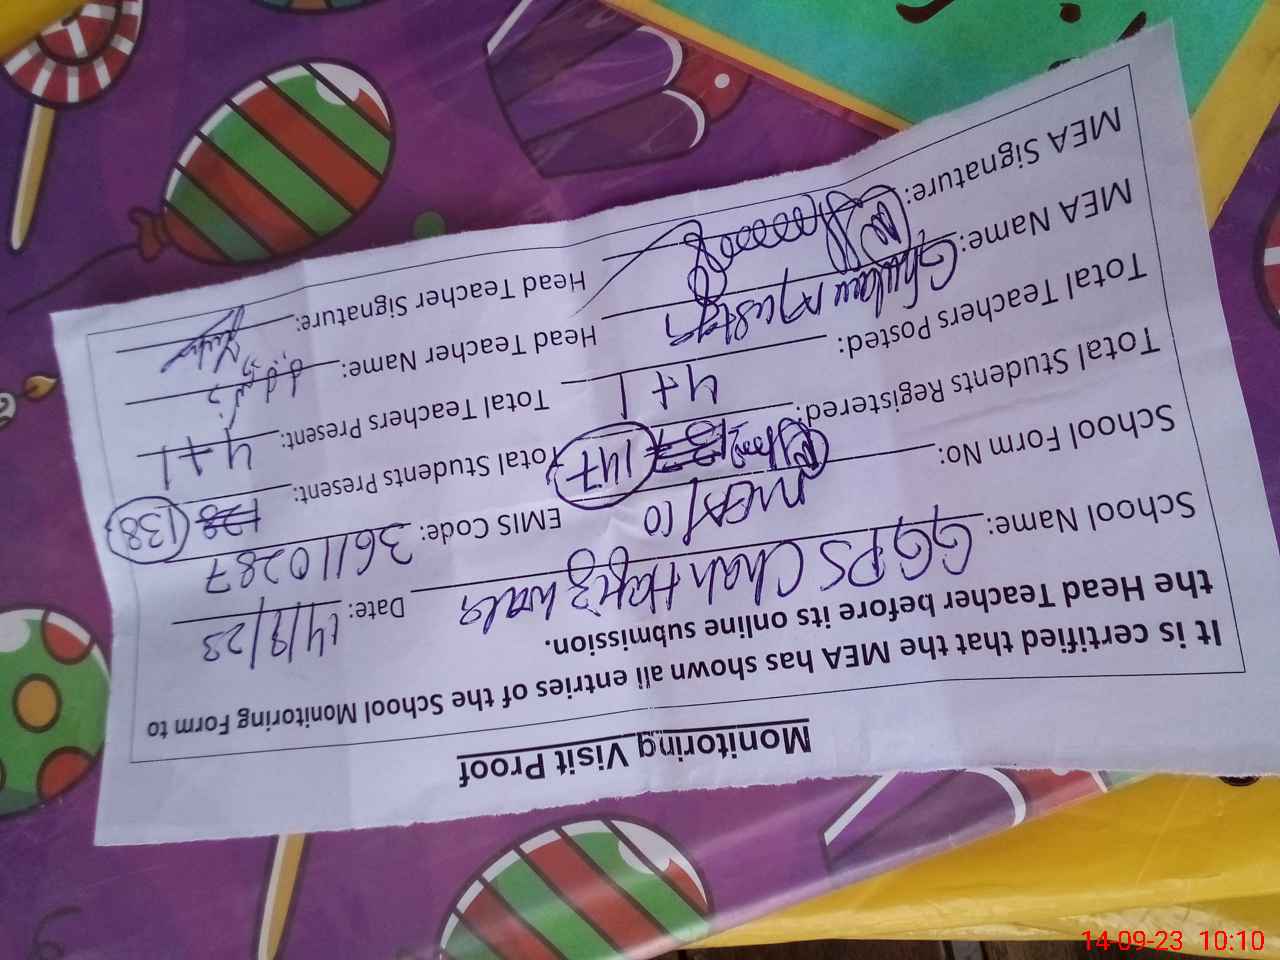 Monitoring Visit Proof
It is certified that the MEA has shown all entries of the School Monitoring Form to
the Head Teacher before its online submission.
School Name: GGPS Chah Hafiz wala Date: 14/9/23
School Form No: EMIS Code: 36110287
Total Students Registered: 147 Total Students Present: 138
Total Teachers Posted: 4+1 Total Teachers Present: 4+1
MEA Name: Ghulam Mustafa Head Teacher Name:
MEA Signature: Head Teacher Signature:
14-09-23 10:10